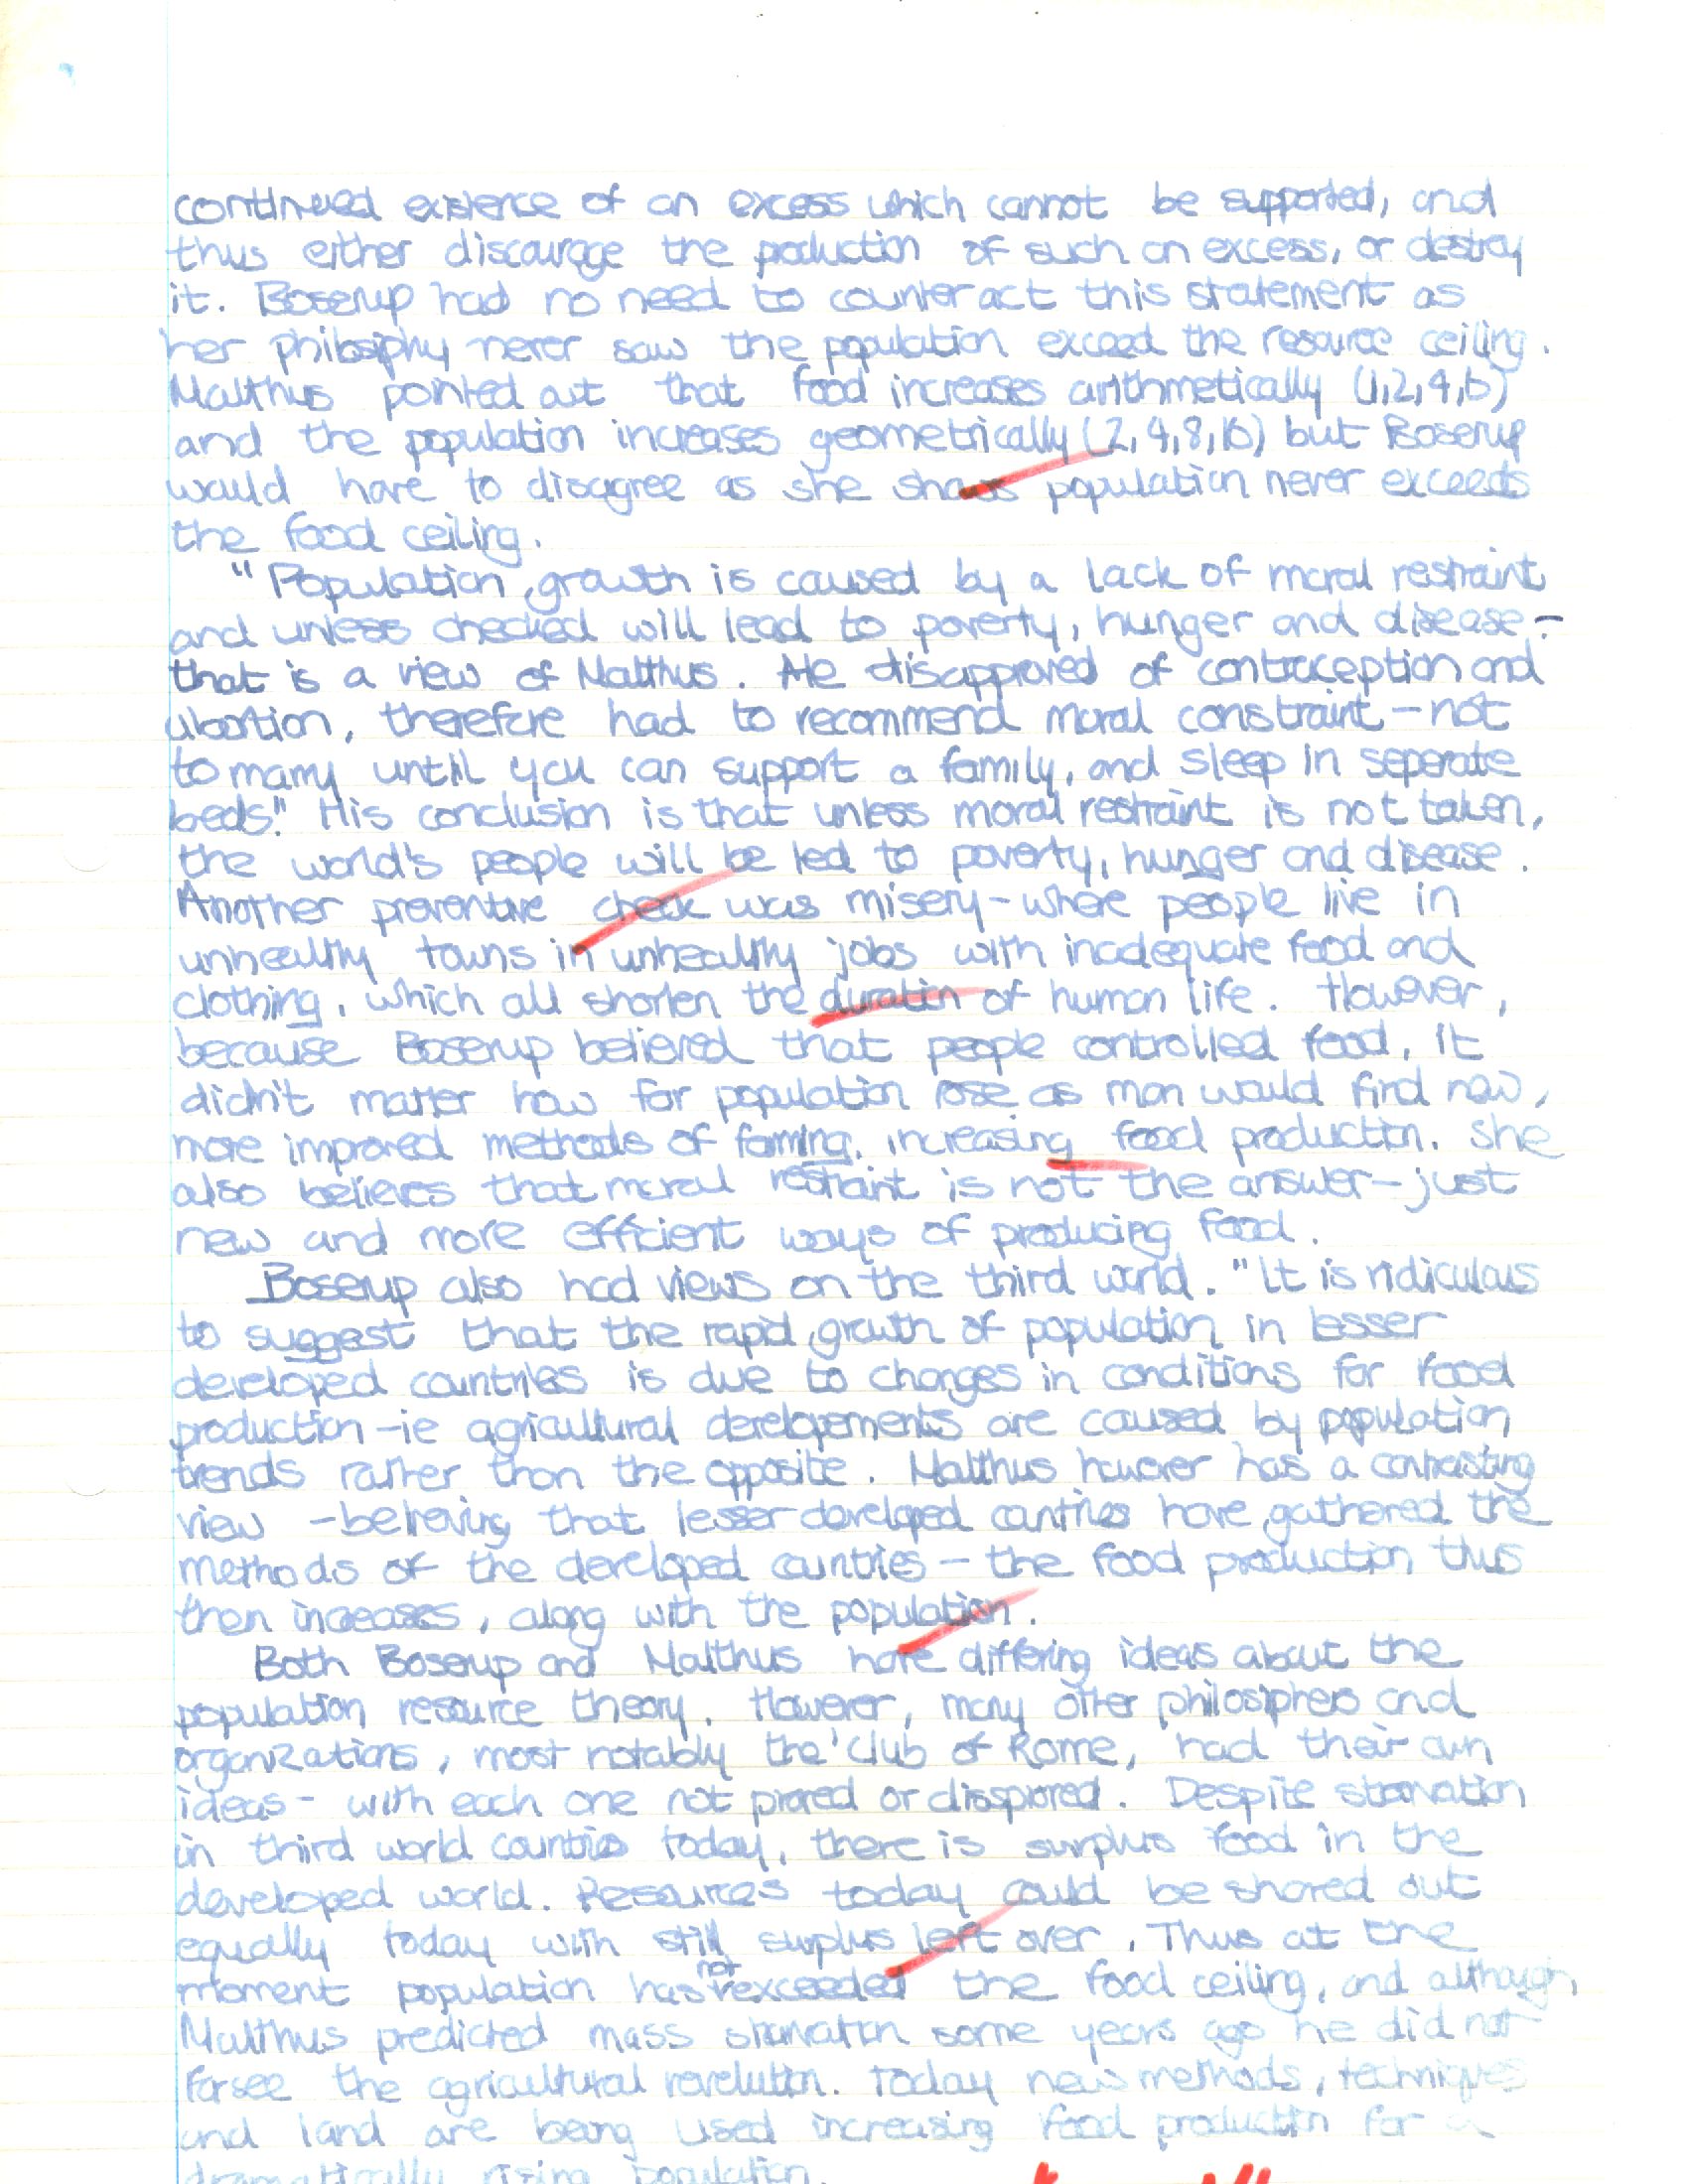 continued existence of an excess which cannot be supported, and
thus either discourage the production of such an excess, or destroy
it. Boserup had no need to counteract this statement as
her philosiphy never saw the population exceed the resource ceiling.
Malthus pointed out that food increases arithmetically (1,2,4,6)
and the population increases geometrically (2,4,8,16) but Boserup
would have to disagree as she shows population never exceeds
the food ceiling.
"Population growth is caused by a lack of moral restraint
and unless checked will lead to poverty, hunger and disease -
that is a view of Malthus. He disapproved of contraception and
abortion, therefore had to recommend moral constraint - not
to marry until you can support a family, and sleep in seperate
beds." His conclusion is that unless moral restraint is not taken,
the world's people will be led to poverty, hunger and disease.
Another preventive check was misery - where people live in
unhealthy towns in unhealthy jobs with inadequate food and
clothing, which all shorten the duratin of human life. However,
because Boserup believed that people controlled food, it
didn't matter how far population rose as man would find new,
more improved methods of farming, increasing food production. She
also believes that moral restraint is not the answer - just
new and more efficient ways of producing food.
Boserup also had views on the third world. "It is ridiculous
to suggest that the rapid growth of population in lesser
developed countries is due to changes in conditions for food
production - ie agricultural developements are caused by population
trends rather than the opposite. Malthus however has a contrasting
view - believing that lesser developed countries have gathered the
methods of the developed countries - the food production thus
then increases, along with the population.
Both Boserup and Malthus have differing ideas about the
population resource theory. However, many other philosiphers and
organizations, most notably the 'Club of Rome, had their own
ideas - with each one not proved or dissproved. Despite starvation
in third world countries today, there is surplus food in the
developed world. Resources today could be shared out
equally today with still surplus left over. Thus at the
moment population has not exceeded the food ceiling, and although,
Malthus predicted mass starvation some years ago he did not
forsee the agricultural revolution. Today new methods, techniques
and land are being used increasing food production for a
dramatically rising population.